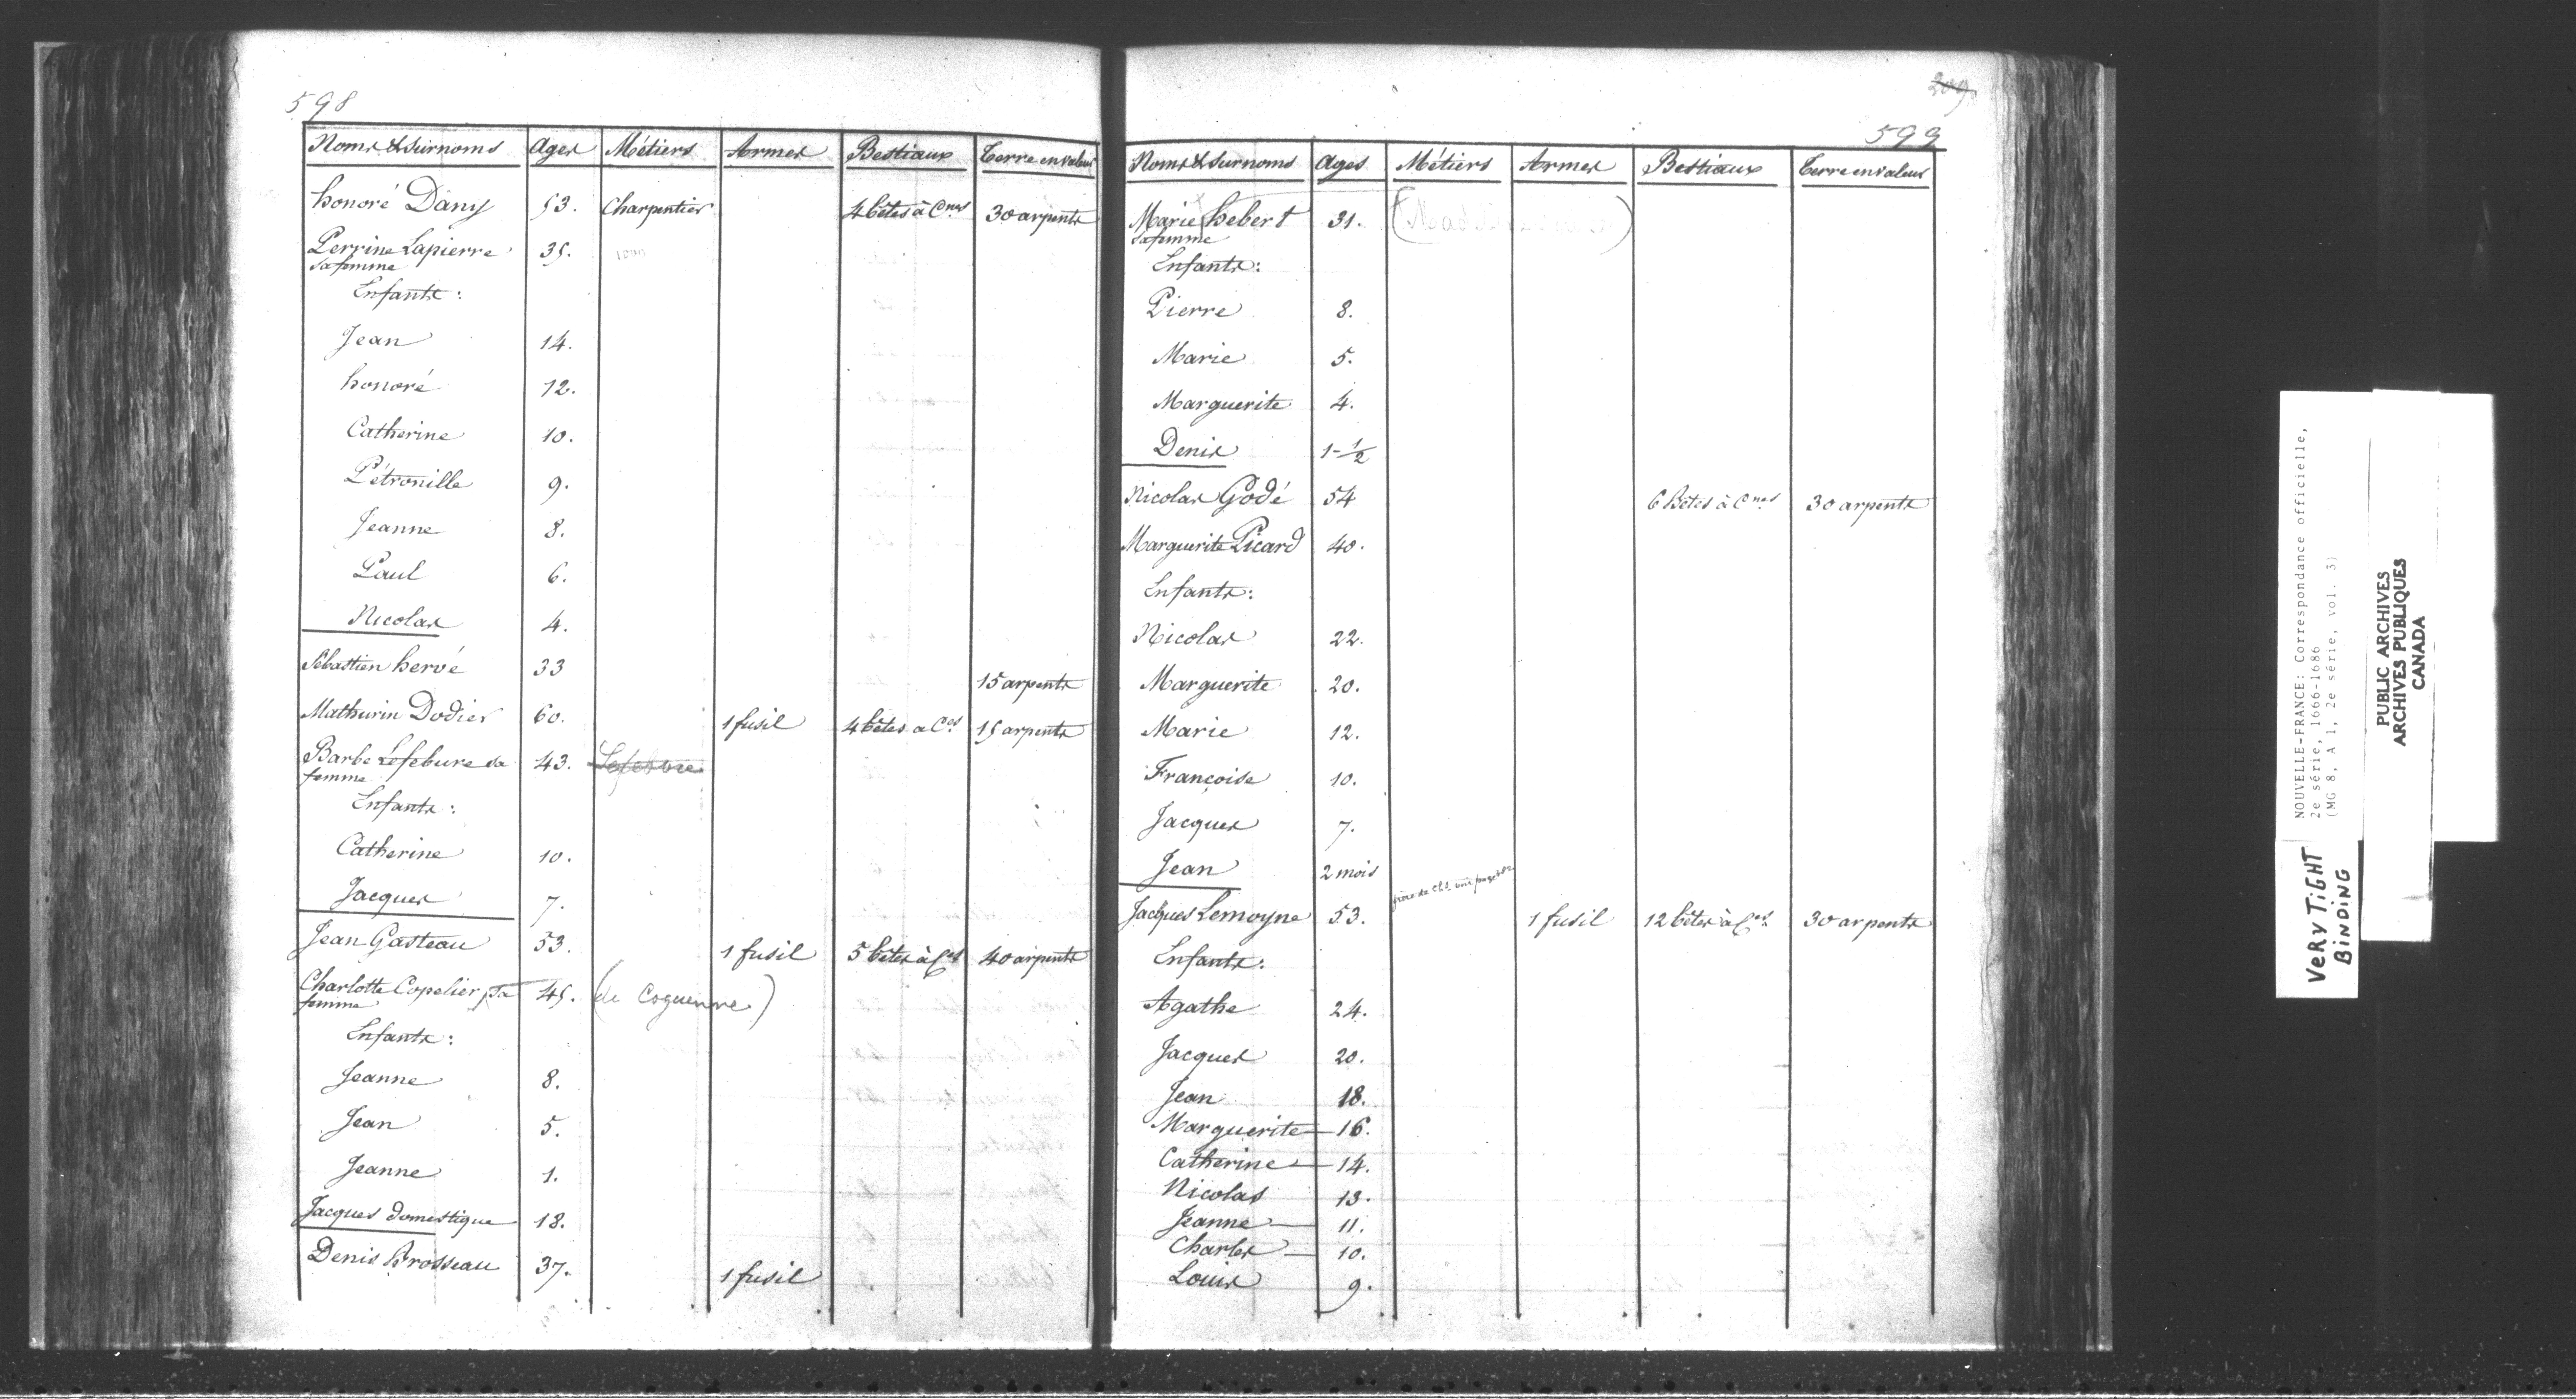 598
Noms & Surnoms Ages Métiers Armes Bestiaux Terre en valeur
honoré Dany 53. Charpentier 4 bêtes à Cnes 30 arpents
Perrine Lapierre 35.
sa femme
Enfants :
Jean 14.
honoré 12.
Catherine 10.
Pétronille 9.
Jeanne 8.
Paul 6.
Nicolas 4.
Sébastien hervé 33
15 arpents
Mathurin Dodier 60. 1 fusil 4 bêtes à Ces 15 arpents
Barbe Léfebure sa 43. Lefebvre
femme
Enfants :
Catherine 10.
Jacques 7.
Jean Gasteau 53. 1 fusil 5 bêtes à Ces 40 arpents
Charlotte Copelier, sa 45. (de Coguenne)
femme
Enfants :
Jeanne 8.
Jean 5.
Jeanne 1.
Jacques domestique 18.
Denis Brosseau 37. 1 fusil
209
599
Noms & Surnoms Ages Métiers Armes Bestiaux Terre en valeur
Marie hebert 31.
sa femme
Enfants :
Pierre 8.
Marie 5.
Marguerite 4.
Denis 1-1/2
Nicolas Godé 54 6 bêtes à Cnes 30 arpents
Marguerite Picard 40.
Enfants :
Nicolas 22.
Marguerite 20.
Marie 12.
Françoise 10.
Jacques 7.
Jean 2 mois
frère de Chs.
Jacques Lemoyne 53. 1 fusil 12 bêtes à Ces 30 arpents
Enfants :
Agathe 24.
Jacques 20.
Jean 18.
Marguerite 16.
Catherine 14.
Nicolas 13.
Jeanne 11.
Charles 10.
Louis 9.
NOUVELLE-FRANCE: Correspondance officielle,
2e série, 1666-1686
(MG 8, A 1, 2e série, vol. 3)
VERY TIGHT
BINDING
PUBLIC ARCHIVES
ARCHIVES PUBLIQUES
CANADA